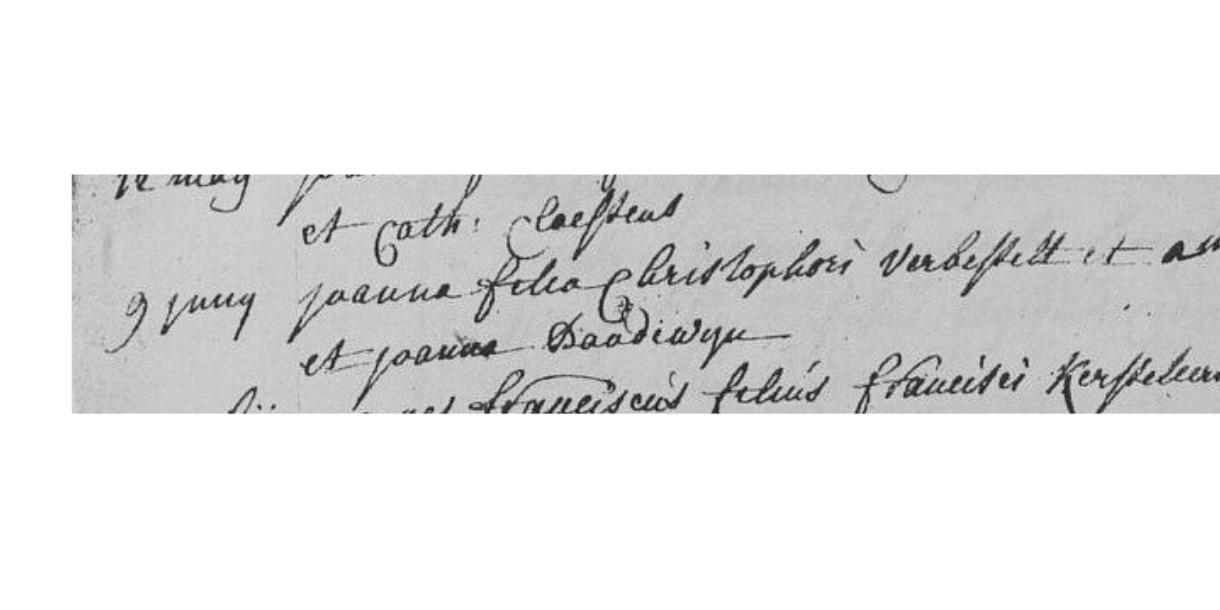 12 may
et Cath: Claessens
9 juny joanna filia Christophori Verbesselt et
et joanna Daodewyn
franciscus filius francisci